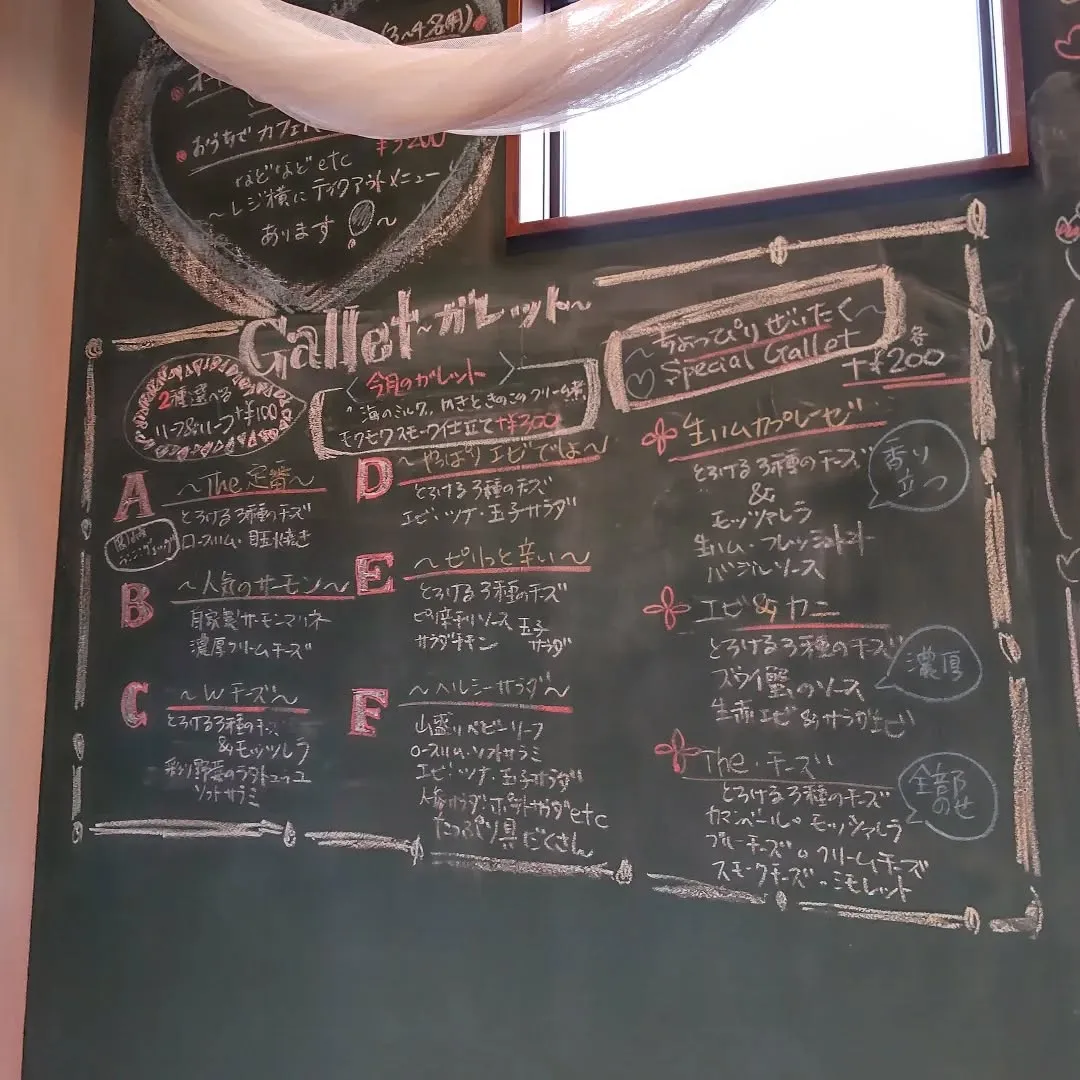 (3~4名用)
おうちで カフェ
¥3200
などなど etc
~レジ横に テイクアウトメニュー
あります ~
Gallet~ガレット~
2種選べる
ハーフ&ハーフ +¥100
<今月のガレット>
海のミルク。かきときのこのクリーム煮。
モクモクスモーク仕立て+¥300
~ちょっぴり ぜいたく~
♡ Special Gallet
各
+¥200
A ~The 定番~
とろける3種のチーズ
ロースハム・目玉焼き
B ~人気のサーモン~
自家製サーモンマリネ
濃厚クリームチーズ
C ~Wチーズ~
とろける3種のチーズ
&モッツァレラ
彩り野菜のラタトゥユ
ソフトサラミ
D ~やっぱり エビでしょ~
とろける3種のチーズ
エビ・ツナ・玉子サラダ
E ~ピリっと辛い~
とろける3種のチーズ
ピリ辛チリソース 玉子
サラダチキン サラダ
F ~ヘルシーサラダ~
山盛りベビーリーフ
ロースハム・ソフトサラミ
エビ・ツナ・玉子サラダ
etc
たっぷり具だくさん
生ハムカプレーゼ
とろける3種のチーズ
&
モッツァレラ
生ハム・フレッシュトマト
バジルソース
香り
立つ
エビ&カニ
とろける3種のチーズ
ズワイ蟹のソース
生赤エビ&サラダエビ
濃厚
The・チーズ
とろける3種のチーズ
カマンベール。モッツァレラ
ブルーチーズ。クリームチーズ
スモークチーズ・ミモレット
全部
のせ